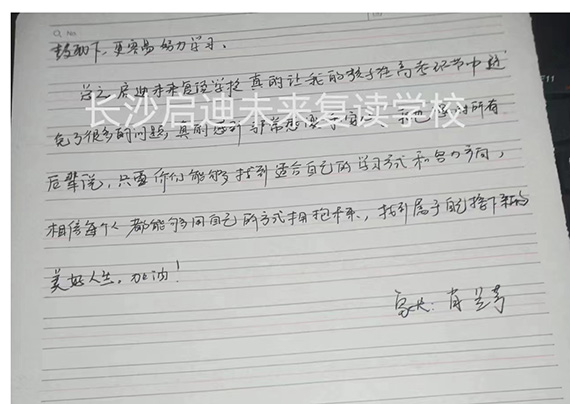 鼓励下,更容易努力学习。
总之启迪未来复读学校真的让我的孩子在高考环节中
长沙启迪未来复读学校
了很多的问题,真的
后辈说,只要你们能够找到适合自己的学习方式和努力方向,
相信每个人都能够用自己的方式拥抱未来,找到属于自己接下来的
美好人生,加油!
家长:肖
No
F11